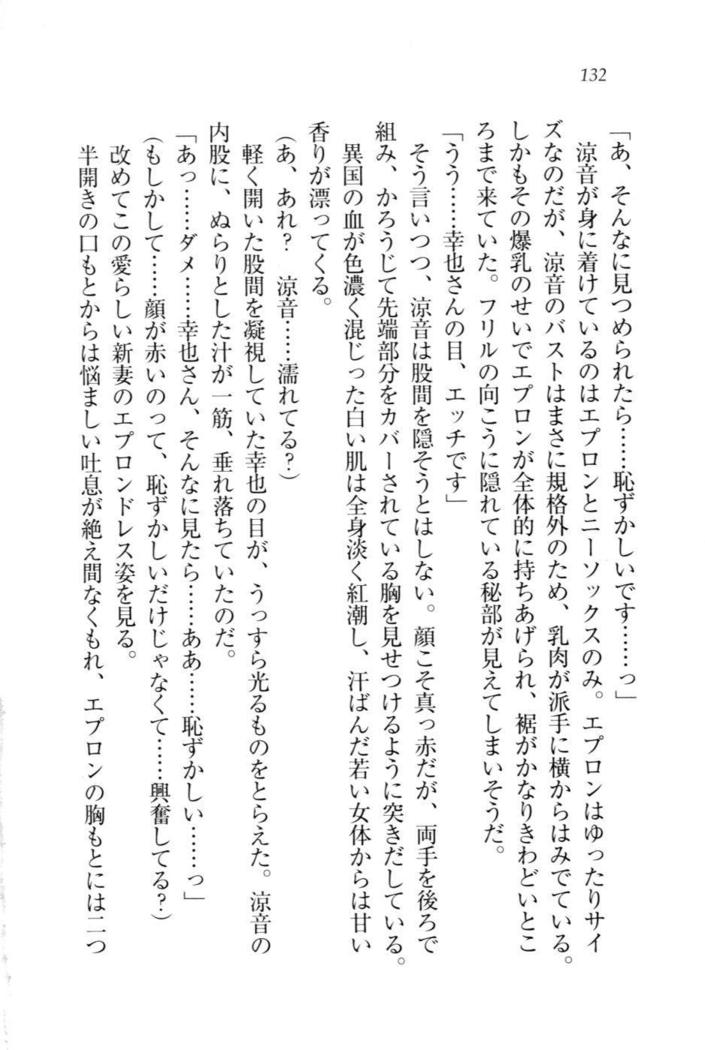 132
「あ、そんなに見つめられたら……恥ずかしいです……っ」
　涼音が身に着けているのはエプロンとニーソックスのみ。エプロンはゆったりサイ
ズなのだが、涼音のバストはまさに規格外のため、乳肉が派手に横からはみでている。
しかもその爆乳のせいでエプロンが全体的に持ちあげられ、裾がかなりきわどいとこ
ろまで来ていた。フリルの向こうに隠れている秘部が見えてしまいそうだ。
「うう……幸也さんの目、エッチです」
　そう言いつつ、涼音は股間を隠そうとはしない。顔こそ真っ赤だが、両手を後ろで
組み、かろうじて先端部分をカバーされている胸を見せつけるように突きだしている。
　異国の血が色濃く混じった白い肌は全身淡く紅潮し、汗ばんだ若い女体からは甘い
香りが漂ってくる。
（あ、あれ？　涼音……濡れてる？）
　軽く開いた股間を凝視していた幸也の目が、うっすら光るものをとらえた。涼音の
内股に、ぬらりとした汁が一筋、垂れ落ちていたのだ。
「あっ……ダメ……幸也さん、そんなに見たら……ああ……恥ずかしい……っ」
（もしかして……顔が赤いのって、恥ずかしいだけじゃなくて……興奮してる？）
　改めてこの愛らしい新妻のエプロンドレス姿を見る。
　半開きの口もとからは悩ましい吐息が絶え間なくもれ、エプロンの胸もとには二つ